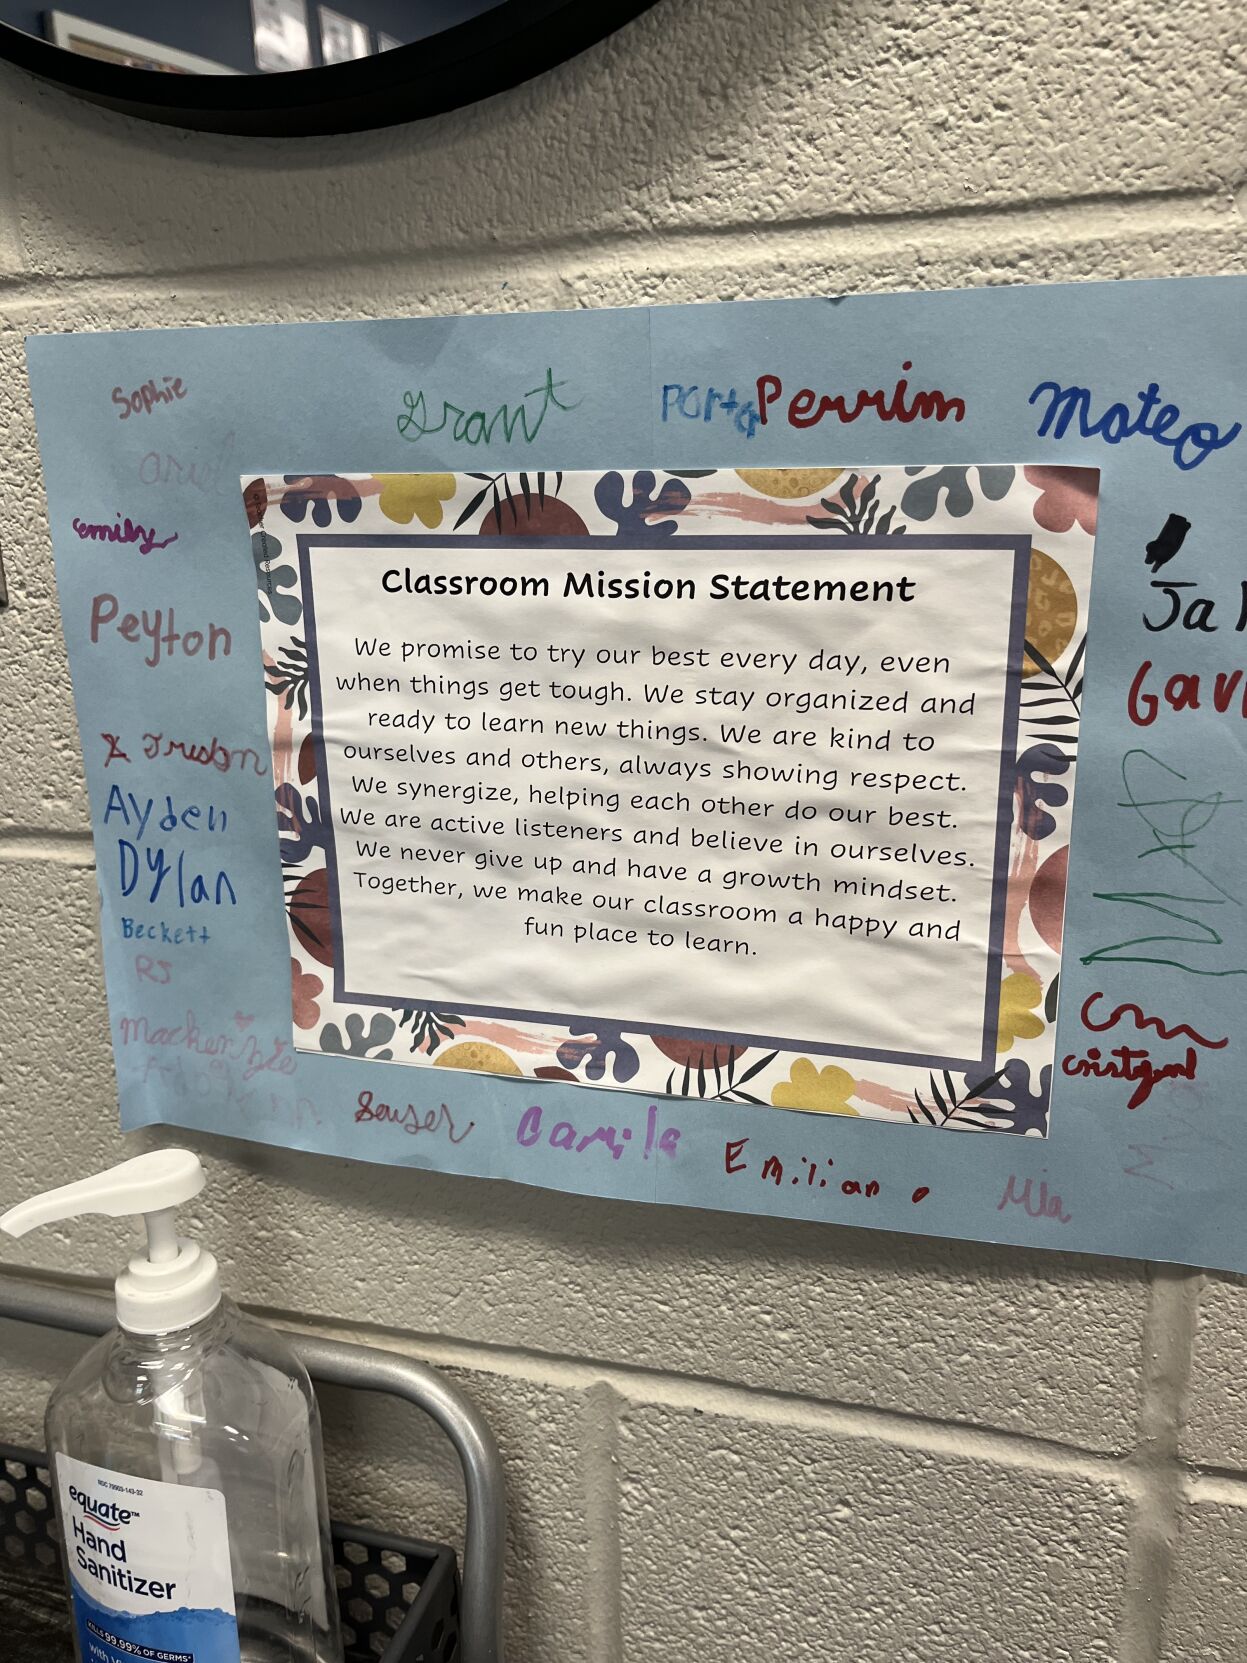 Sophie
Grant
Perrim
Mateo
emily
Peyton
Ayden
Dylan
Beckett
RJ
Mackenzie
Camila
Emilian
Mia
Classroom Mission Statement
We promise to try our best every day, even
when things get tough. We stay organized and
ready to learn new things. We are kind to
ourselves and others, always showing respect.
We synergize, helping each other do our best.
We are active listeners and believe in ourselves.
We never give up and have a growth mindset.
Together, we make our classroom a happy and
fun place to learn.
NDC 79903-143-32
equate™
Hand
Sanitizer
KILLS 99.99% OF GERMS*